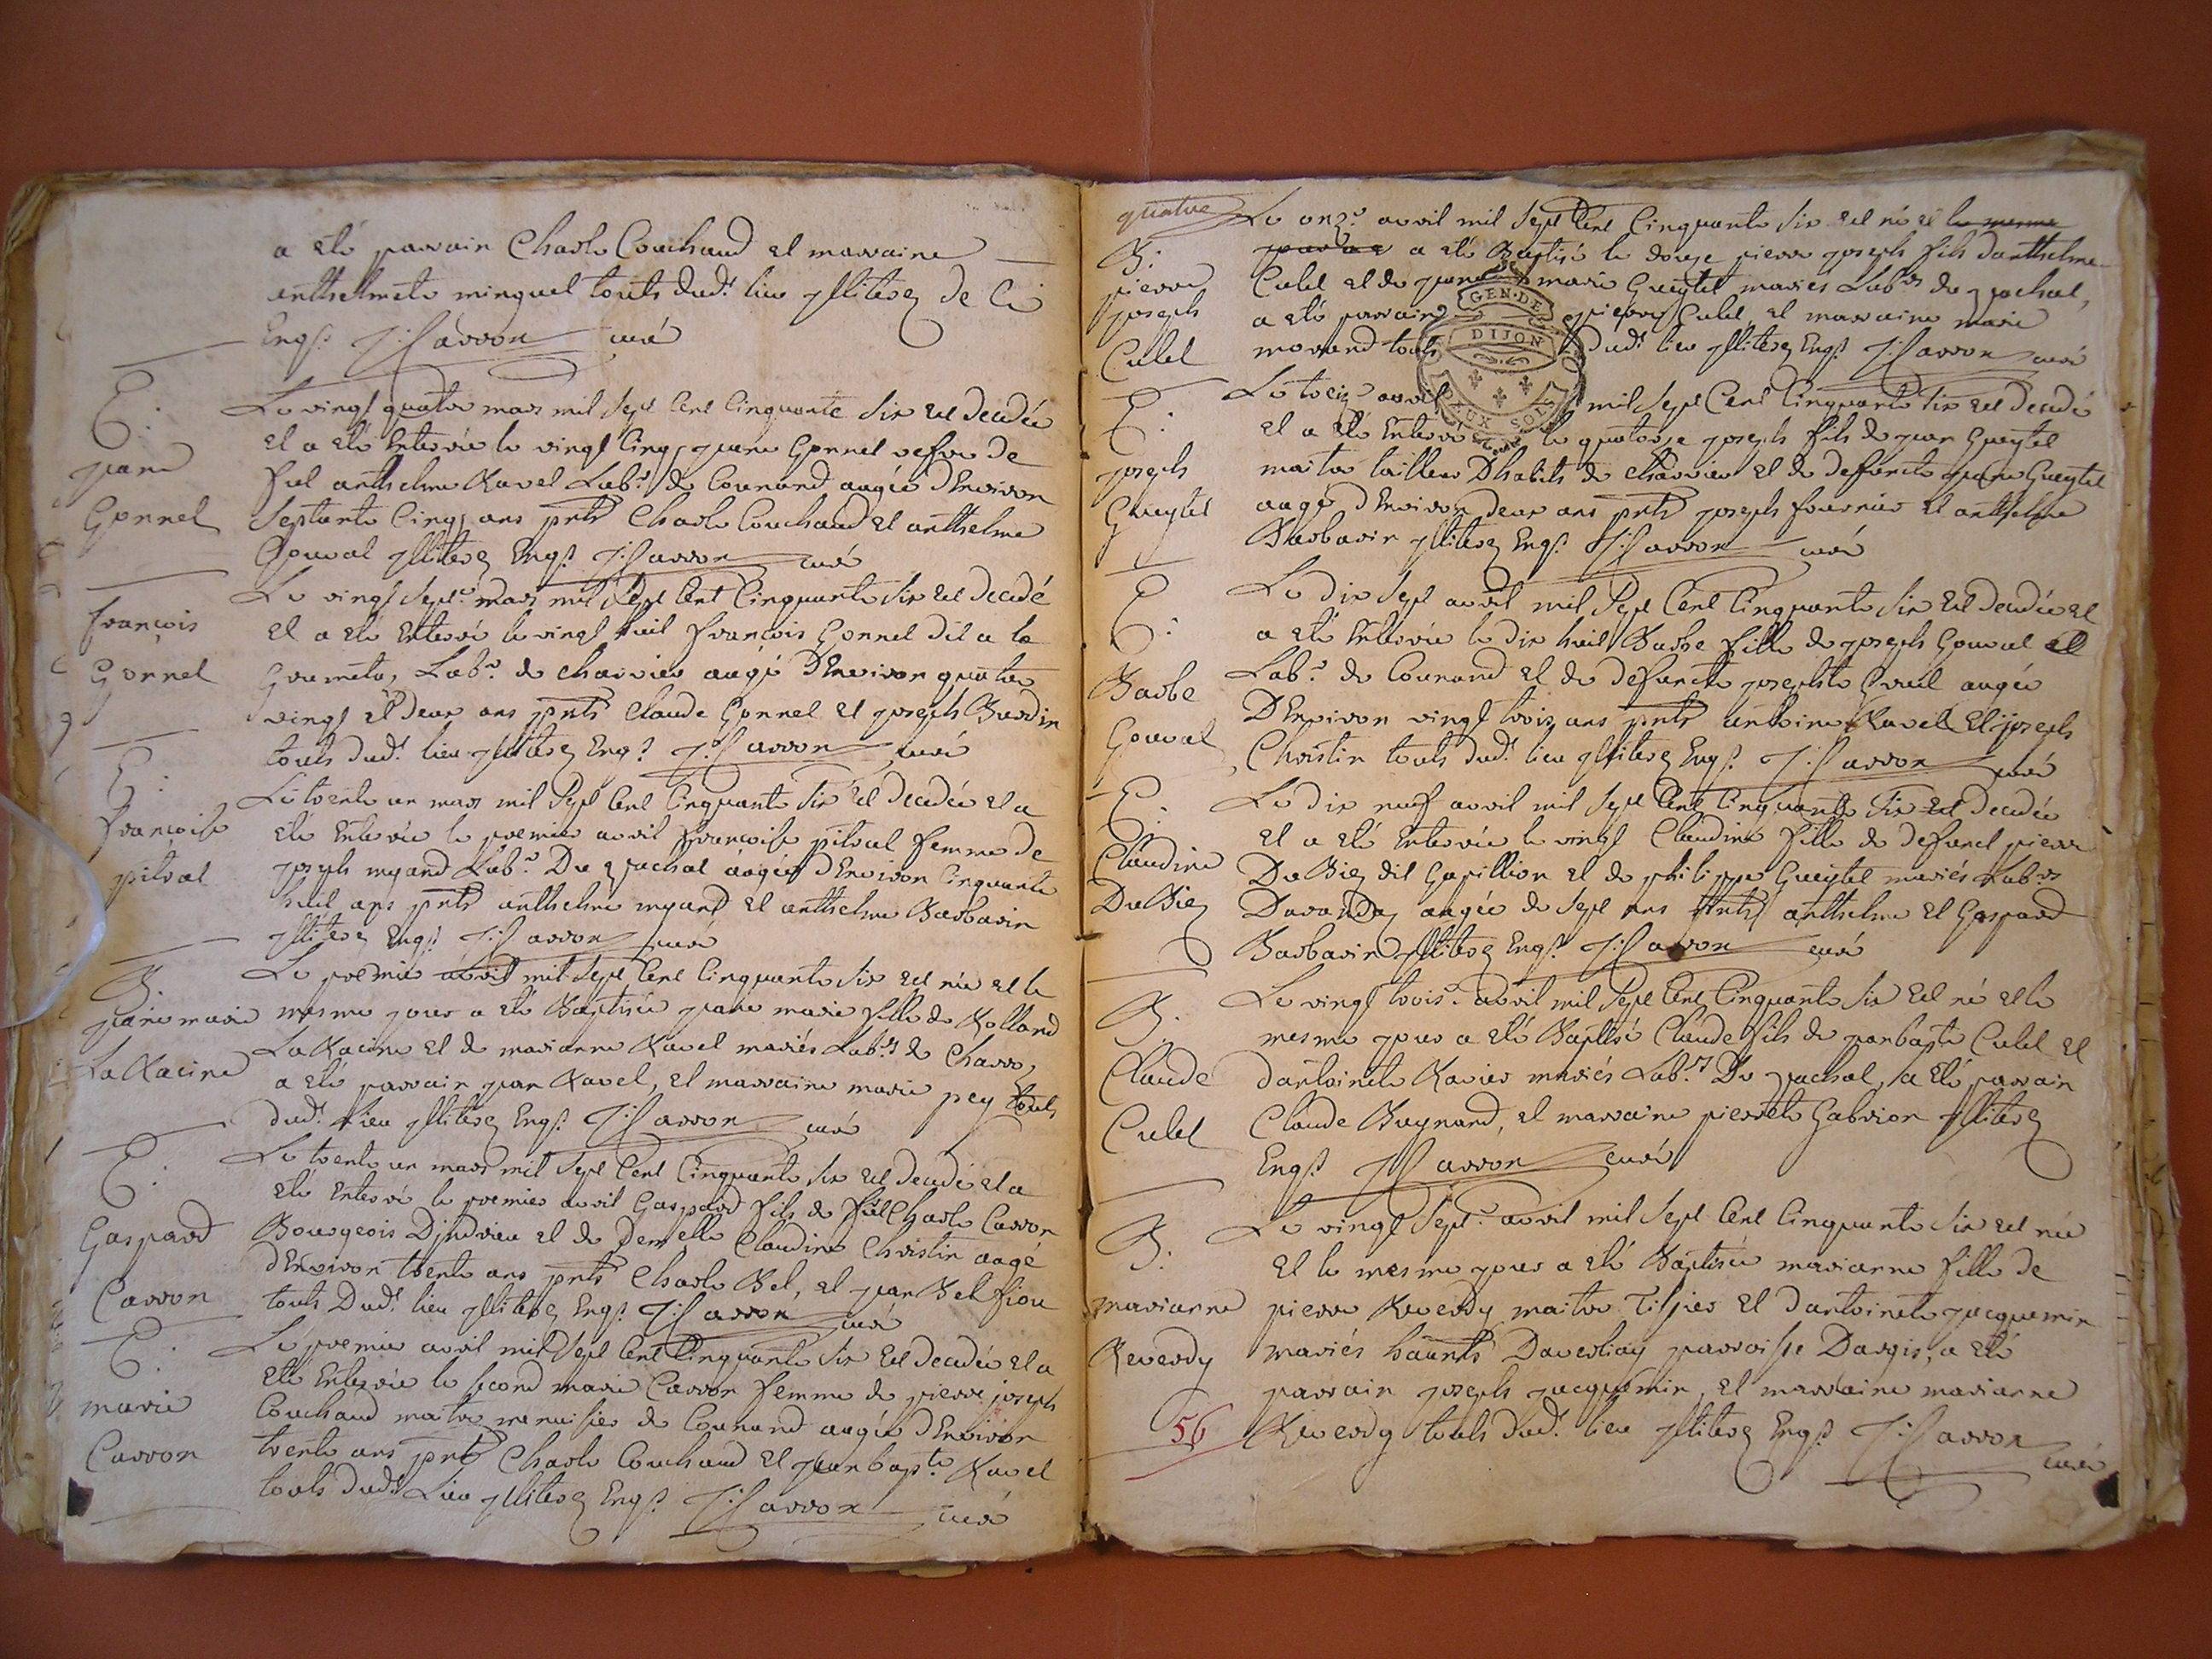 a eté parrain Charle Couchaud et marraine
anthelmete minguet touts dud.t lieu illiterez de ce
Enq.s J: Carron curé
E:
jeane
Gonnet
Le vingt quatre mars mil sept cent cinquante six est decedée
et a eté enterrée le vingt cinq jeane Gonnet vefve de
feu anthelme Ravet Lab.r de Counand aagée d'Environ
septante cinq ans pnts Charle Couchaud et anthelme
Gouvat illiterez Enq.s J: Carron curé
françois
Gonnet
Le vingt sept.e mars mil sept cent cinquante six est decedé
et a eté enterré le vingt huit françois Gonnet dit a la
Lab.r de charvieu aagé d'Environ quatre
vingt et deux ans pnts Claude Gonnet et joseph Burdin
touts dud.t lieu illiterez Enq.s J: Carron curé
E:
françoise
pitrat
Le trente un mars mil sept cent cinquante six est decedée et a
eté enterrée le premier avril françoise pitrat femme de
joseph myand Lab.r De aagée d'Environ cinquante
huit ans pnts anthelme myand et anthelme Barbarin
illiterez Enq.s J: Carron curé
B.
jeane marie
La Racine
Le premier avril mil sept cent cinquante six est née et le
mesme jour a eté Baptisée jeane marie fille de Rolland
La Racine et de marianne Ravet mariés Lab.rs de Charv.
a eté parrain jean Ravet, et marraine marie pey touts
dud.t lieu illiterez Enq.s J: Carron curé
E:
Gaspard
Carron
Le trente un mars mil sept cent cinquante six est decedé et a
eté enterré le premier avril Gaspard fils de feu Charle Carron
Bourgeois D'jndrieu et de Demelle Claudine Christin aagé
d'Environ trente ans pnts Charle Bel, et jean Bel fiou
touts Dud.t lieu illiterez Enq.s J: Carron curé
E:
marie
Carron
Le premier avril mil sept cent cinquante six est decedée et a
eté enterrée le second marie Carron femme de pierre joseph
Couchaud maitre menuisier de Counand aagée d'Environ
trente ans pnts Charle Couchaud et jean bapt.e Ravet
touts dud.t Lieu illiterez Enq.s J: Carron curé
quatre
B:
pierre
joseph
Culet
Le onz.e avril mil sept cent cinquante six est né et le mesme
a eté Baptisé le douze pierre joseph fils d'anthelme
Culet et de jeane marie Gueytet mariés Lab.rs de
a eté parrain pierre Culet, et marraine marie
morand touts dud.t lieu illiterez Enq.s J: Carron curé
GEN. DE
DIJON
AUX SOLS
E:
joseph
Gueytet
Le treiz.e avril mil sept cent cinquante six est decedé
et a eté enterré le quatorze joseph fils de jean Gueytet
maitre tailleur D'habits de charvieu et de defuncte jeane Gueytet
aagé d'Environ deux ans pnts joseph fournier et anthelme
Barbarin illiterez Enq.s J: Carron curé
E:
Barbe
Gouvat
Le dix sept avril mil sept cent cinquante six est decedée et
a eté enterrée le dix huit Barbe fille de joseph Gouvat
Lab.r de Counand et de defuncte josephte aagée
D'Environ vingt trois ans pnts antoine Ravet et joseph
Christin touts dud.t lieu illiterez Enq.s J: Carron curé
E:
Claudine
Du Biez
Le dix neuf avril mil sept cent cinquante six est decedée
et a eté enterrée le vingt Claudine fille de defunct pierre
Du Biez dit Gapillion et de philippe Gueytet mariés Lab.rs
aagée de sept ans pnts anthelme et Gaspard
Barbarin illiterez Enq.s J: Carron curé
B.
Claude
Culet
Le vingt trois.e avril mil sept cent cinquante six est né et le
mesme jour a eté Baptisé Claude fils de jeanbapte Culet et
d'antoinete Ravier mariés Lab.rs De a eté parrain
Claude Buynand, et marraine pierrete Gabrion illiterez
Enq.s J: Carron curé
B.
marianne
Reverdy
Le vingt sept.e avril mil sept cent cinquante six est née
et le mesme jour a eté Baptisée marianne fille de
pierre Reverdy maitre Tissier et d'antoinete jacquemin
mariés paroisse Dargis, a eté
parrain joseph jacquemin, et marraine marianne
Reverdy touts dud.t lieu illiterez Enq.s J: Carron
curé
56